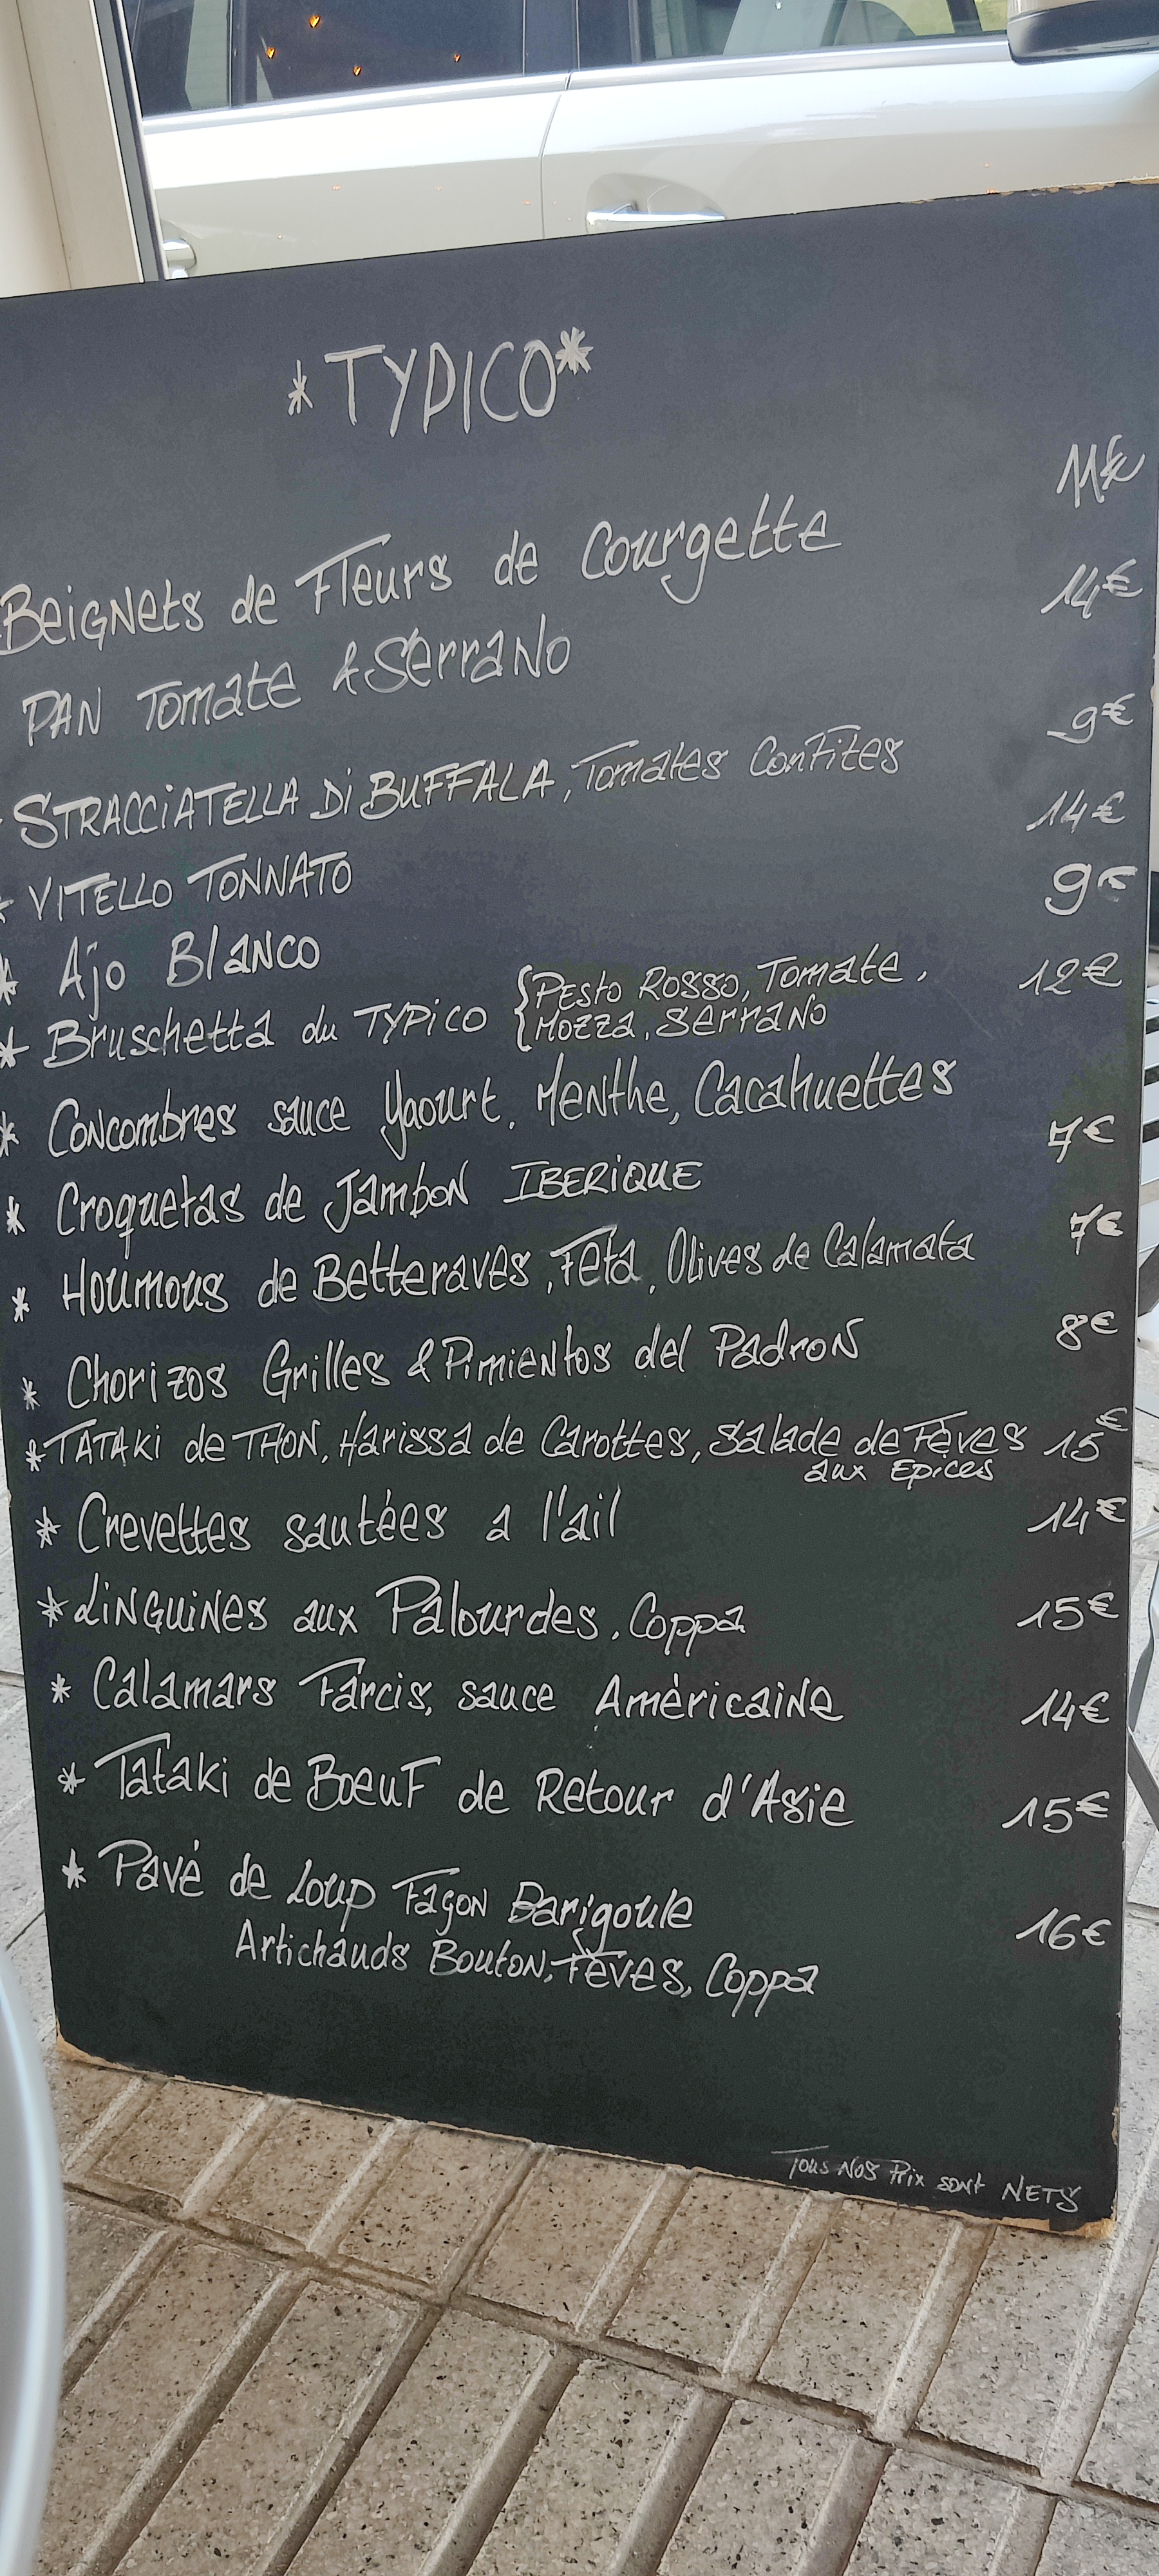 *TYPICO*
Beignets de Fleurs de Courgette 11€
PAN Tomate & Serrano 14€
* STRACCIATELLA Di BUFFALA, Tomates Confites 9€
* VITELLO TONNATO 14€
* Ajo Blanco 9€
* Bruschetta du TYPICO { Pesto Rosso, Tomate, 12€
Mozza, Serrano
* Concombres sauce Yaourt, Menthe, Cacahuettes
* Croquetas de Jambon IBERIQUE 7€
* Houmous de Betteraves, Feta, Olives de Calamata 7€
* Chorizos Grilles & Pimientos del Padron 8€
* TATAKi de THON, Harissa de Carottes, Salade de Fèves 15€
aux Epices
* Crevettes sautées a l'ail 14€
* LiNGuiNes aux Palourdes, Coppa 15€
* Calamars Farcis, sauce Américaine 14€
* Tataki de Boeuf de Retour d'Asie 15€
* Pavé de Loup Façon Barigoule 16€
Artichauds Bouton, Fèves, Coppa
Tous Nos Prix sont NETS